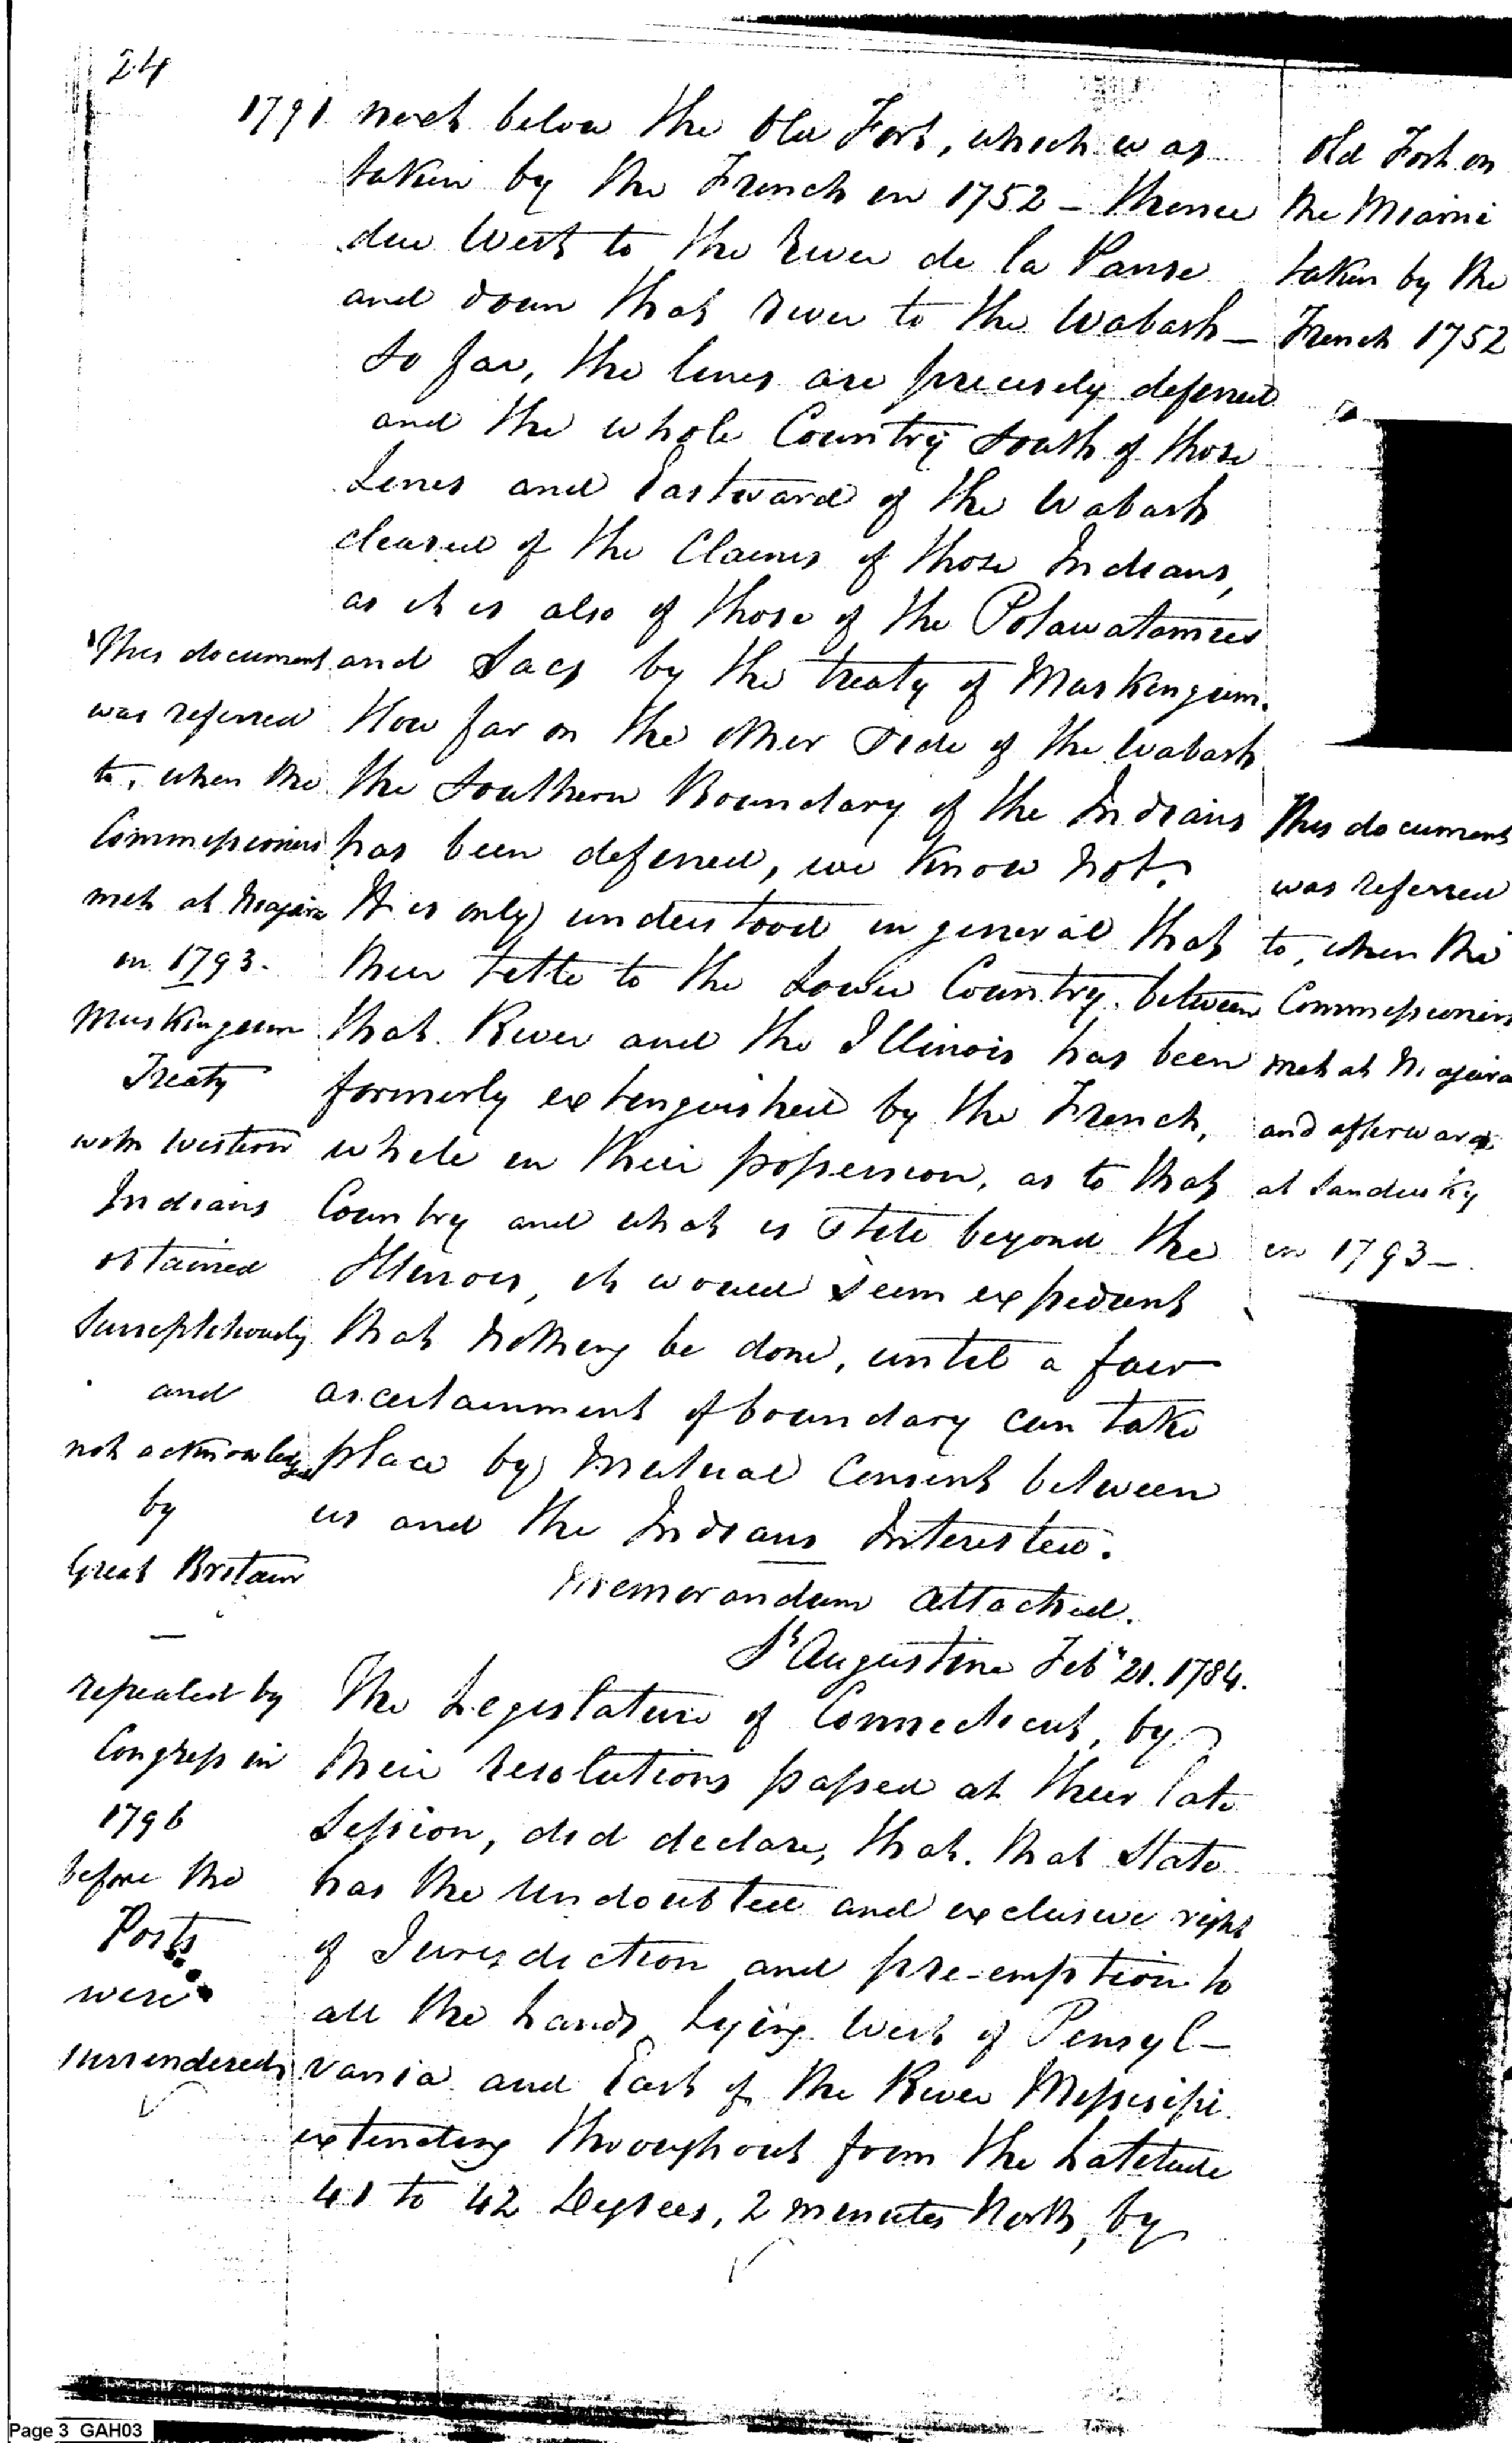 24
1791 next below the Old Fort, which was
taken by the French in 1752 - thence
due West to the River de la Panse
and down that River to the Wabash -
So far, the lines are precisely defined
and the whole Country South of those
Lines and Eastward of the Wabash
cleared of the Claims of those Indians,
as it is also of those of the Potawatamies
and Sacs by the treaty of Muskingum.
How far on the other side of the Wabash
the Southern Boundary of the Indians
has been defined, we know not.
It is only understood in general that
their title to the Lower Country between
that River and the Illinois has been
formerly extinguished by the French,
while in their possession, as to that
Country and what is still beyond the
Illinois, it would seem expedient
that nothing be done, until a fair
ascertainment of boundary can take
place by mutual Consent between
us and the Indians Interested.
Memorandum attached.
St Augustine Feby 21. 1784.
The Legislature of Connecticut, by
their resolutions passed at their late
Session, did declare, that that State
has the undoubted and exclusive right
of Jurisdiction and pre-emption to
all the Lands Lying West of Pensyl-
vania and East of the River Missisipi
extending throughout from the Latitude
41 to 42 Degrees, 2 minutes North, by
This document
was referred
to, when the
Commissioners
met at Niagara
in 1793.
Muskingum
Treaty
with Western
Indians
obtained
Surreptitiously
and
not acknowledged
by
Great Britain
repealed by
Congress in
1796
before the
Posts
were
surrendered
Old Fort on
the Miami
taken by the
French 1752
This document
was referred
to, when the
Commissioners
met at Niagara
and afterwards
at Sandusky
in 1793 -
Page 3 GAH03